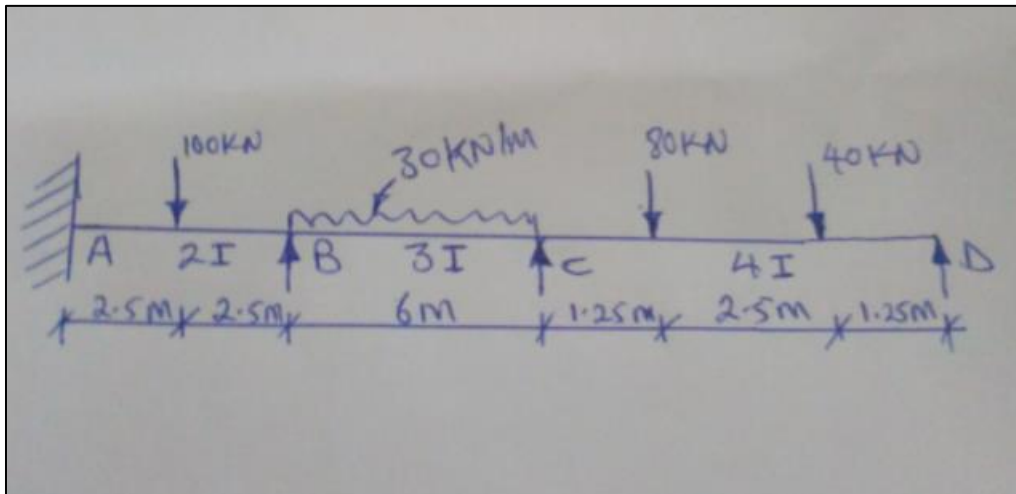 100KN
30KN/M
80KN
40KN
A 2I B 3I C 4I D
2.5M 2.5M 6M 1.25M 2.5M 1.25M